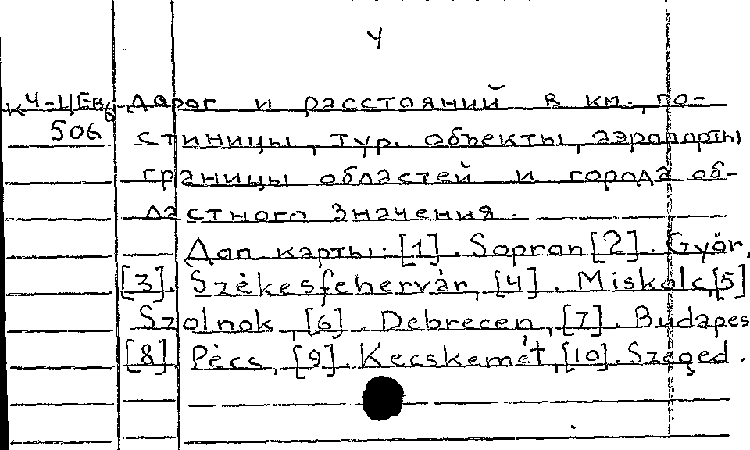 4
к 4-1/Ев6 Дорог и расстояний в км., го-
506 стиницы, тур. объекты, аэропорты
границы областей и города об-
ластного значения.
Доп. карты: [1]. Sopron [2]. Győr,
[3]. Székesfehervár, [4]. Miskolc, [5]
Szolnok, [6]. Debrecen, [7]. Budapes
[8] Pécs, [9]. Kecskemét, [10]. Szeged.